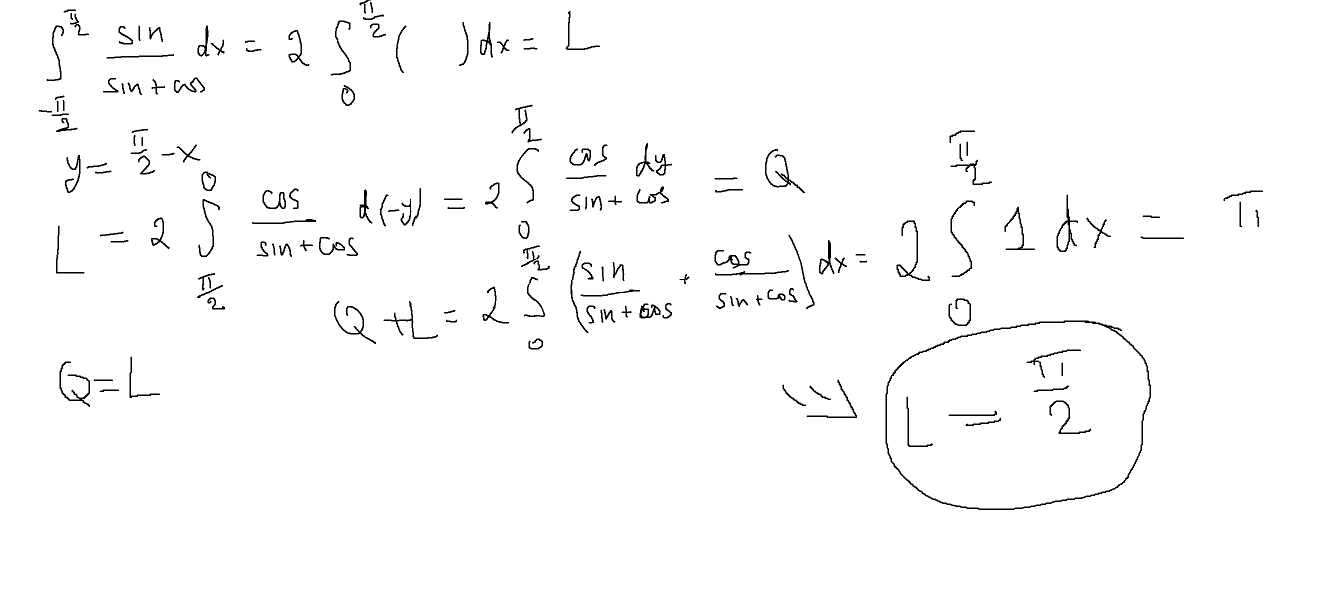 ∫_{-π/2}^{π/2} sin/(sin+cos) dx = 2 ∫_0^{π/2} ( ) dx = L
y = π/2 - x
L = 2 ∫_{π/2}^0 cos/(sin+cos) d(-y) = 2 ∫_0^{π/2} cos/(sin+cos) dy = Q
Q+L = 2 ∫_0^{π/2} (sin/(sin+cos) + cos/(sin+cos)) dx = 2 ∫_0^{π/2} 1 dx = π
Q=L
L = π/2